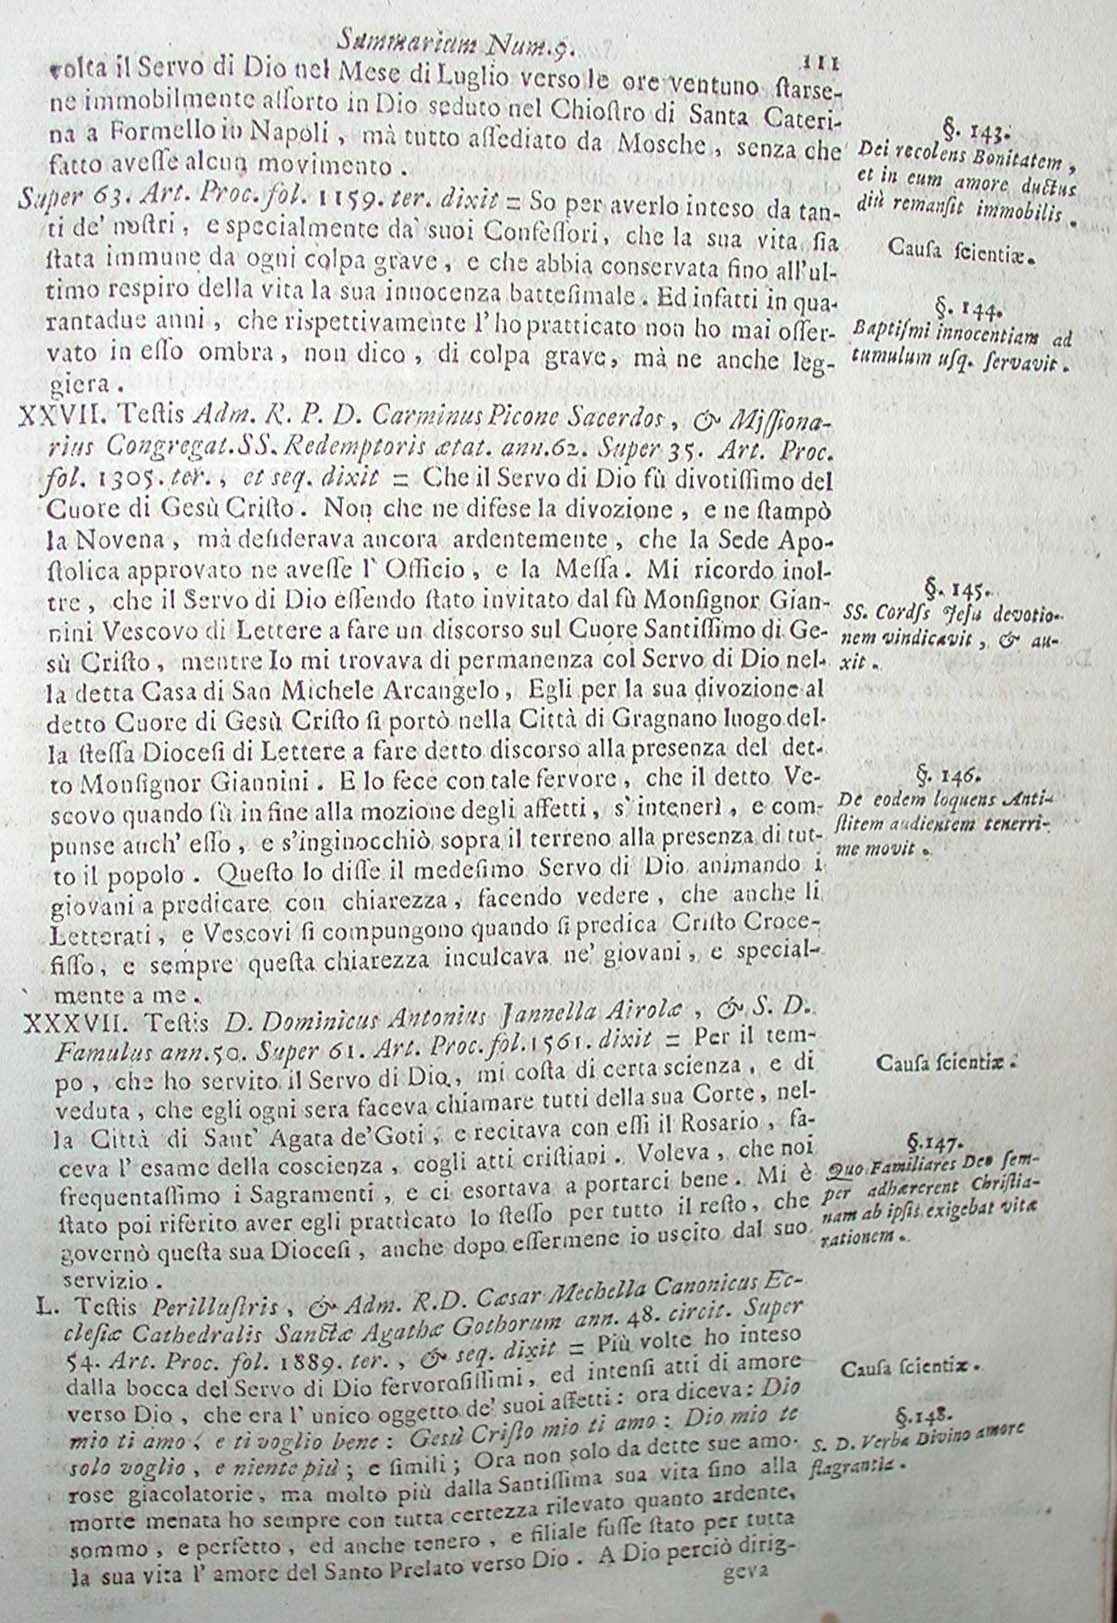 Summarium Num.9.
111
volta il Servo di Dio nel Mese di Luglio verso le ore ventuno ſtarse-
ne immobilmente aſſorto in Dio seduto nel Chioſtro di Santa Cateri-
na a Formello in Napoli, mà tutto aſſediato da Mosche, senza che
fatto aveſſe alcun movimento.
Super 63. Art. Proc. fol. 1159. ter. dixit = So per averlo inteso da tan-
ti de' noſtri, e specialmente da' suoi Confeſſori, che la sua vita ſia
ſtata immune da ogni colpa grave, e che abbia conservata fino all'ul-
timo respiro della vita la sua innocenza batteſimale. Ed infatti in qua-
rantadue anni, che rispettivamente l'ho pratticato non ho mai oſſer-
vato in eſſo ombra, non dico, di colpa grave, mà ne anche leg-
giera.
XXVII. Teſtis Adm. R. P. D. Carminus Picone Sacerdos, & Miſſiona-
rius Congregat. SS. Redemptoris ætat. ann. 62. Super 35. Art. Proc.
fol. 1305. ter., et seq. dixit = Che il Servo di Dio fù divotiſſimo del
Cuore di Gesù Criſto. Non che ne difese la divozione, e ne ſtampò
la Novena, mà deſiderava ancora ardentemente, che la Sede Apo-
ſtolica approvato ne aveſſe l' Officio, e la Meſſa. Mi ricordo inol-
tre, che il Servo di Dio eſſendo ſtato invitato dal fù Monſignor Gian-
nini Vescovo di Lettere a fare un discorso sul Cuore Santiſſimo di Ge-
sù Criſto, mentre Io mi trovava di permanenza col Servo di Dio nel-
la detta Casa di San Michele Arcangelo, Egli per la sua divozione al
detto Cuore di Gesù Criſto ſi portò nella Città di Gragnano luogo del-
la ſteſſa Dioceſi di Lettere a fare detto discorso alla presenza del det-
to Monſignor Giannini. E lo fece con tale fervore, che il detto Ve-
scovo quando fù in fine alla mozione degli affetti, s'intenerì, e com-
punse anch' eſſo, e s'inginocchiò sopra il terreno alla presenza di tut-
to il popolo. Queſto lo diſſe il medeſimo Servo di Dio animando i
giovani a predicare con chiarezza, facendo vedere, che anche li
Letterati, e Vescovi ſi compungono quando ſi predica Criſto Croce-
fiſſo, e sempre queſta chiarezza inculcava ne' giovani, e special-
mente a me.
XXXVII. Teſtis D. Dominicus Antonius Jannella Airolæ, & S. D.
Famulus ann. 50. Super 61. Art. Proc. fol. 1561. dixit = Per il tem-
po, che ho servito il Servo di Dio, mi coſta di certa scienza, e di
veduta, che egli ogni sera faceva chiamare tutti della sua Corte, nel-
la Città di Sant' Agata de' Goti, e recitava con eſſi il Rosario, fa-
ceva l' esame della coscienza, cogli atti criſtiani. Voleva, che noi
frequentaſſimo i Sagramenti, e ci esortava a portarci bene. Mi è
ſtato poi riferito aver egli pratticato lo ſteſſo per tutto il reſto, che
governò queſta sua Dioceſi, anche dopo eſſermene io uscito dal suo
servizio.
L. Teſtis Perilluſtris, & Adm. R.D. Cæsar Mechella Canonicus Ec-
cleſiæ Cathedralis Sanctæ Agathæ Gothorum ann. 48. circit. Super
54. Art. Proc. fol. 1889. ter., & seq. dixit = Più volte ho inteso
dalla bocca del Servo di Dio fervoroſiſſimi, ed intenſi atti di amore
verso Dio, che era l' unico oggetto de' suoi affetti: ora diceva: Dio
mio ti amo, e ti voglio bene: Gesù Criſto mio ti amo: Dio mio te
solo voglio, e niente più; e ſimili; Ora non solo da dette sue amo-
rose giacolatorie, ma molto più dalla Santiſſima sua vita ſino alla
morte menata ho sempre con tutta certezza rilevato quanto ardente,
sommo, e perfetto, ed anche tenero, e filiale fuſſe ſtato per tutta
la sua vita l' amore del Santo Prelato verso Dio. A Dio perciò dirig-
geva
§. 143.
Dei recolens Bonitatem,
et in eum amore ductus
diù remanſit immobilis.
Cauſa ſcientiæ.
§. 144.
Baptiſmi innocentiam ad
tumulum uſq. ſervavit.
§. 145.
SS. Cordſs Jeſu devotio-
nem vindicavit, & au-
xit.
§. 146.
De eodem loquens Anti-
ſtitem audientem tenerri-
me movit.
Cauſa ſcientiæ.
§. 147.
Quo Familiares Deo ſem-
per adhærerent Chriſtia-
nam ab ipſis exigebat vitæ
rationem.
Cauſa ſcientiæ.
§. 148.
S. D. Verba Divino amore
flagrantia.